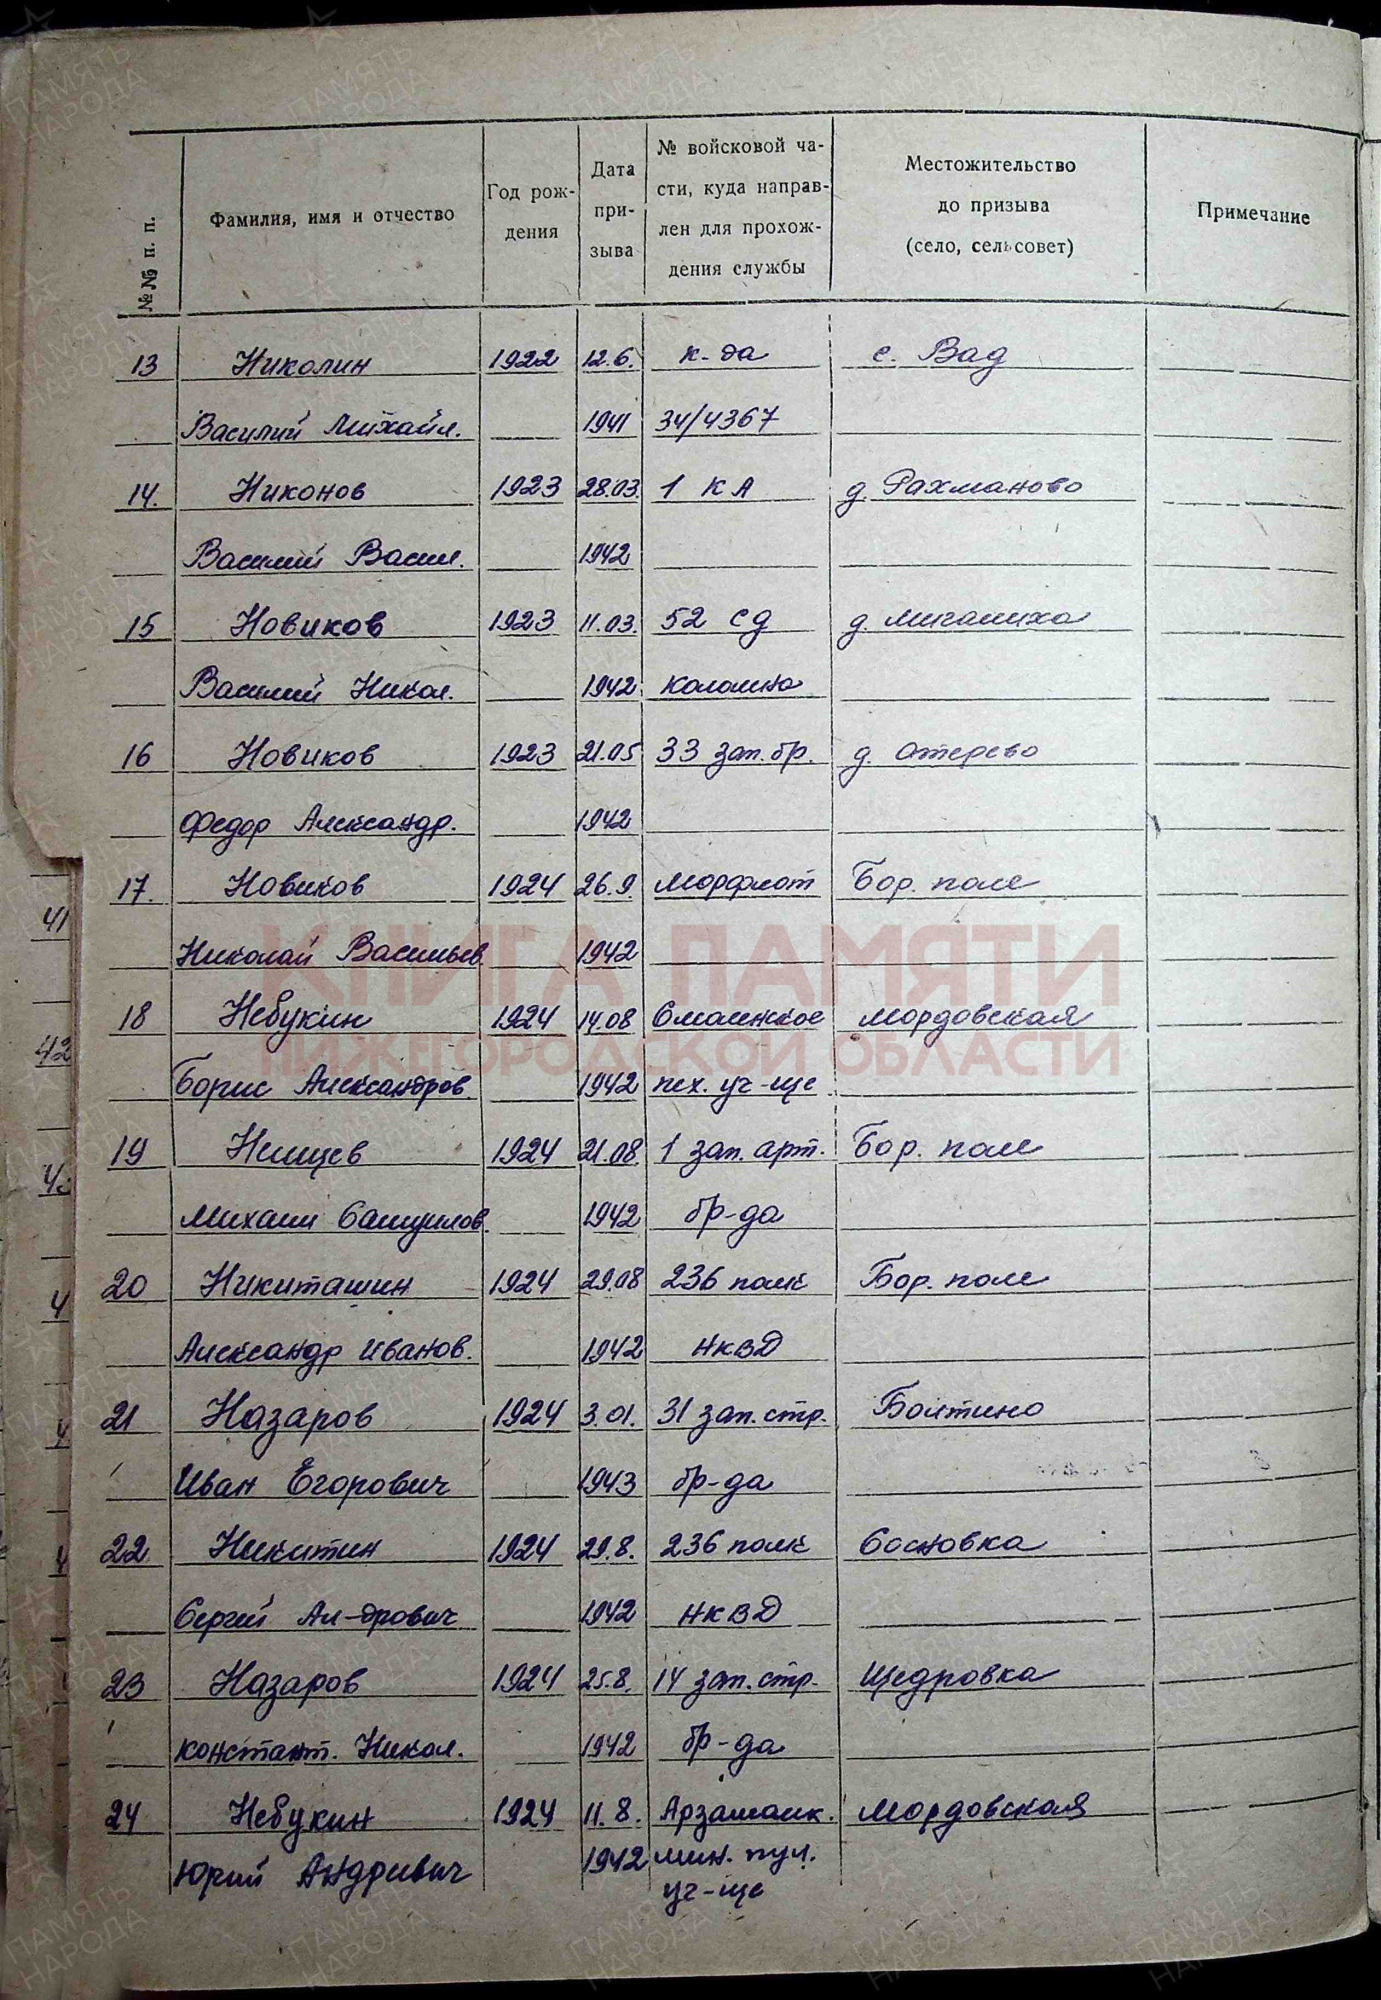 №№ п. п.
Фамилия, имя и отчество
Год рож-
дения
Дата
при-
зыва
№ войсковой ча-
сти, куда направ-
лен для прохож-
дения службы
Местожительство
до призыва
(село, сельсовет)
Примечание
13 Николин 1922 12.6. к-да с. Вад
Василий Михайл. 1941 34/4367
14. Никонов 1923 28.03. 1 КА д. Рахманово
Василий Васил. 1942
15 Новиков 1923 11.03. 52 сд д. Мигалиха
Василий Никол. 1942 Коломна
16 Новиков 1923 21.05 33 зап. бр. д. Отерево
Федор Александр. 1942
17. Новиков 1924 26.9. Морфлот Бор. поле
Николай Васильев. 1942
18 Небукин 1924 14.08 Мордовская
Борис Александров. 1942 пех. уч-ще
19 Немцев 1924 21.08. 1 зап. арт. Бор. поле
Михаил Самуилов. 1942 бр-да
20 Никиташин 1924 29.08 236 полк Бор. поле
Александр Иванов. 1942 НКВД
21 Назаров 1924 3.01. 31 зап. стр. Болтино
Иван Егорович 1943 бр-да
22 Никитин 1924 29.8. 236 полк Сосновка
Сергей Ал-дрович 1942 НКВД
23 Назаров 1924 25.8. 14 зап. стр. Щедровка
Констант. Никол. 1942 бр-да
24 Небукин 1924 11.8. Арзамаск. Мордовская
Юрий Андреевич 1942 мин. пул.
уч-ще
41
42
КНИГА ПАМЯТИ
НИЖЕГОРОДСКОЙ ОБЛАСТИ
ПАМЯТЬ
НАРОДА